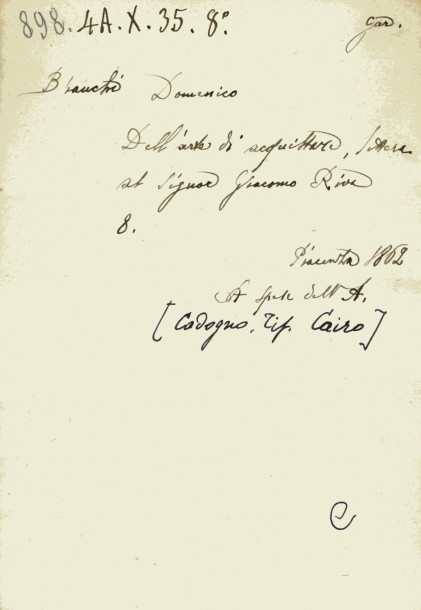 898. 4A. X. 35. 8º
gar.
Bianchi Domenico
Dell'arte di acquittare, lettera
al Signor Giacomo Riva
8.
Piacenza 1862
A spese dell'A.
[Codogno, Tip. Cairo]
C